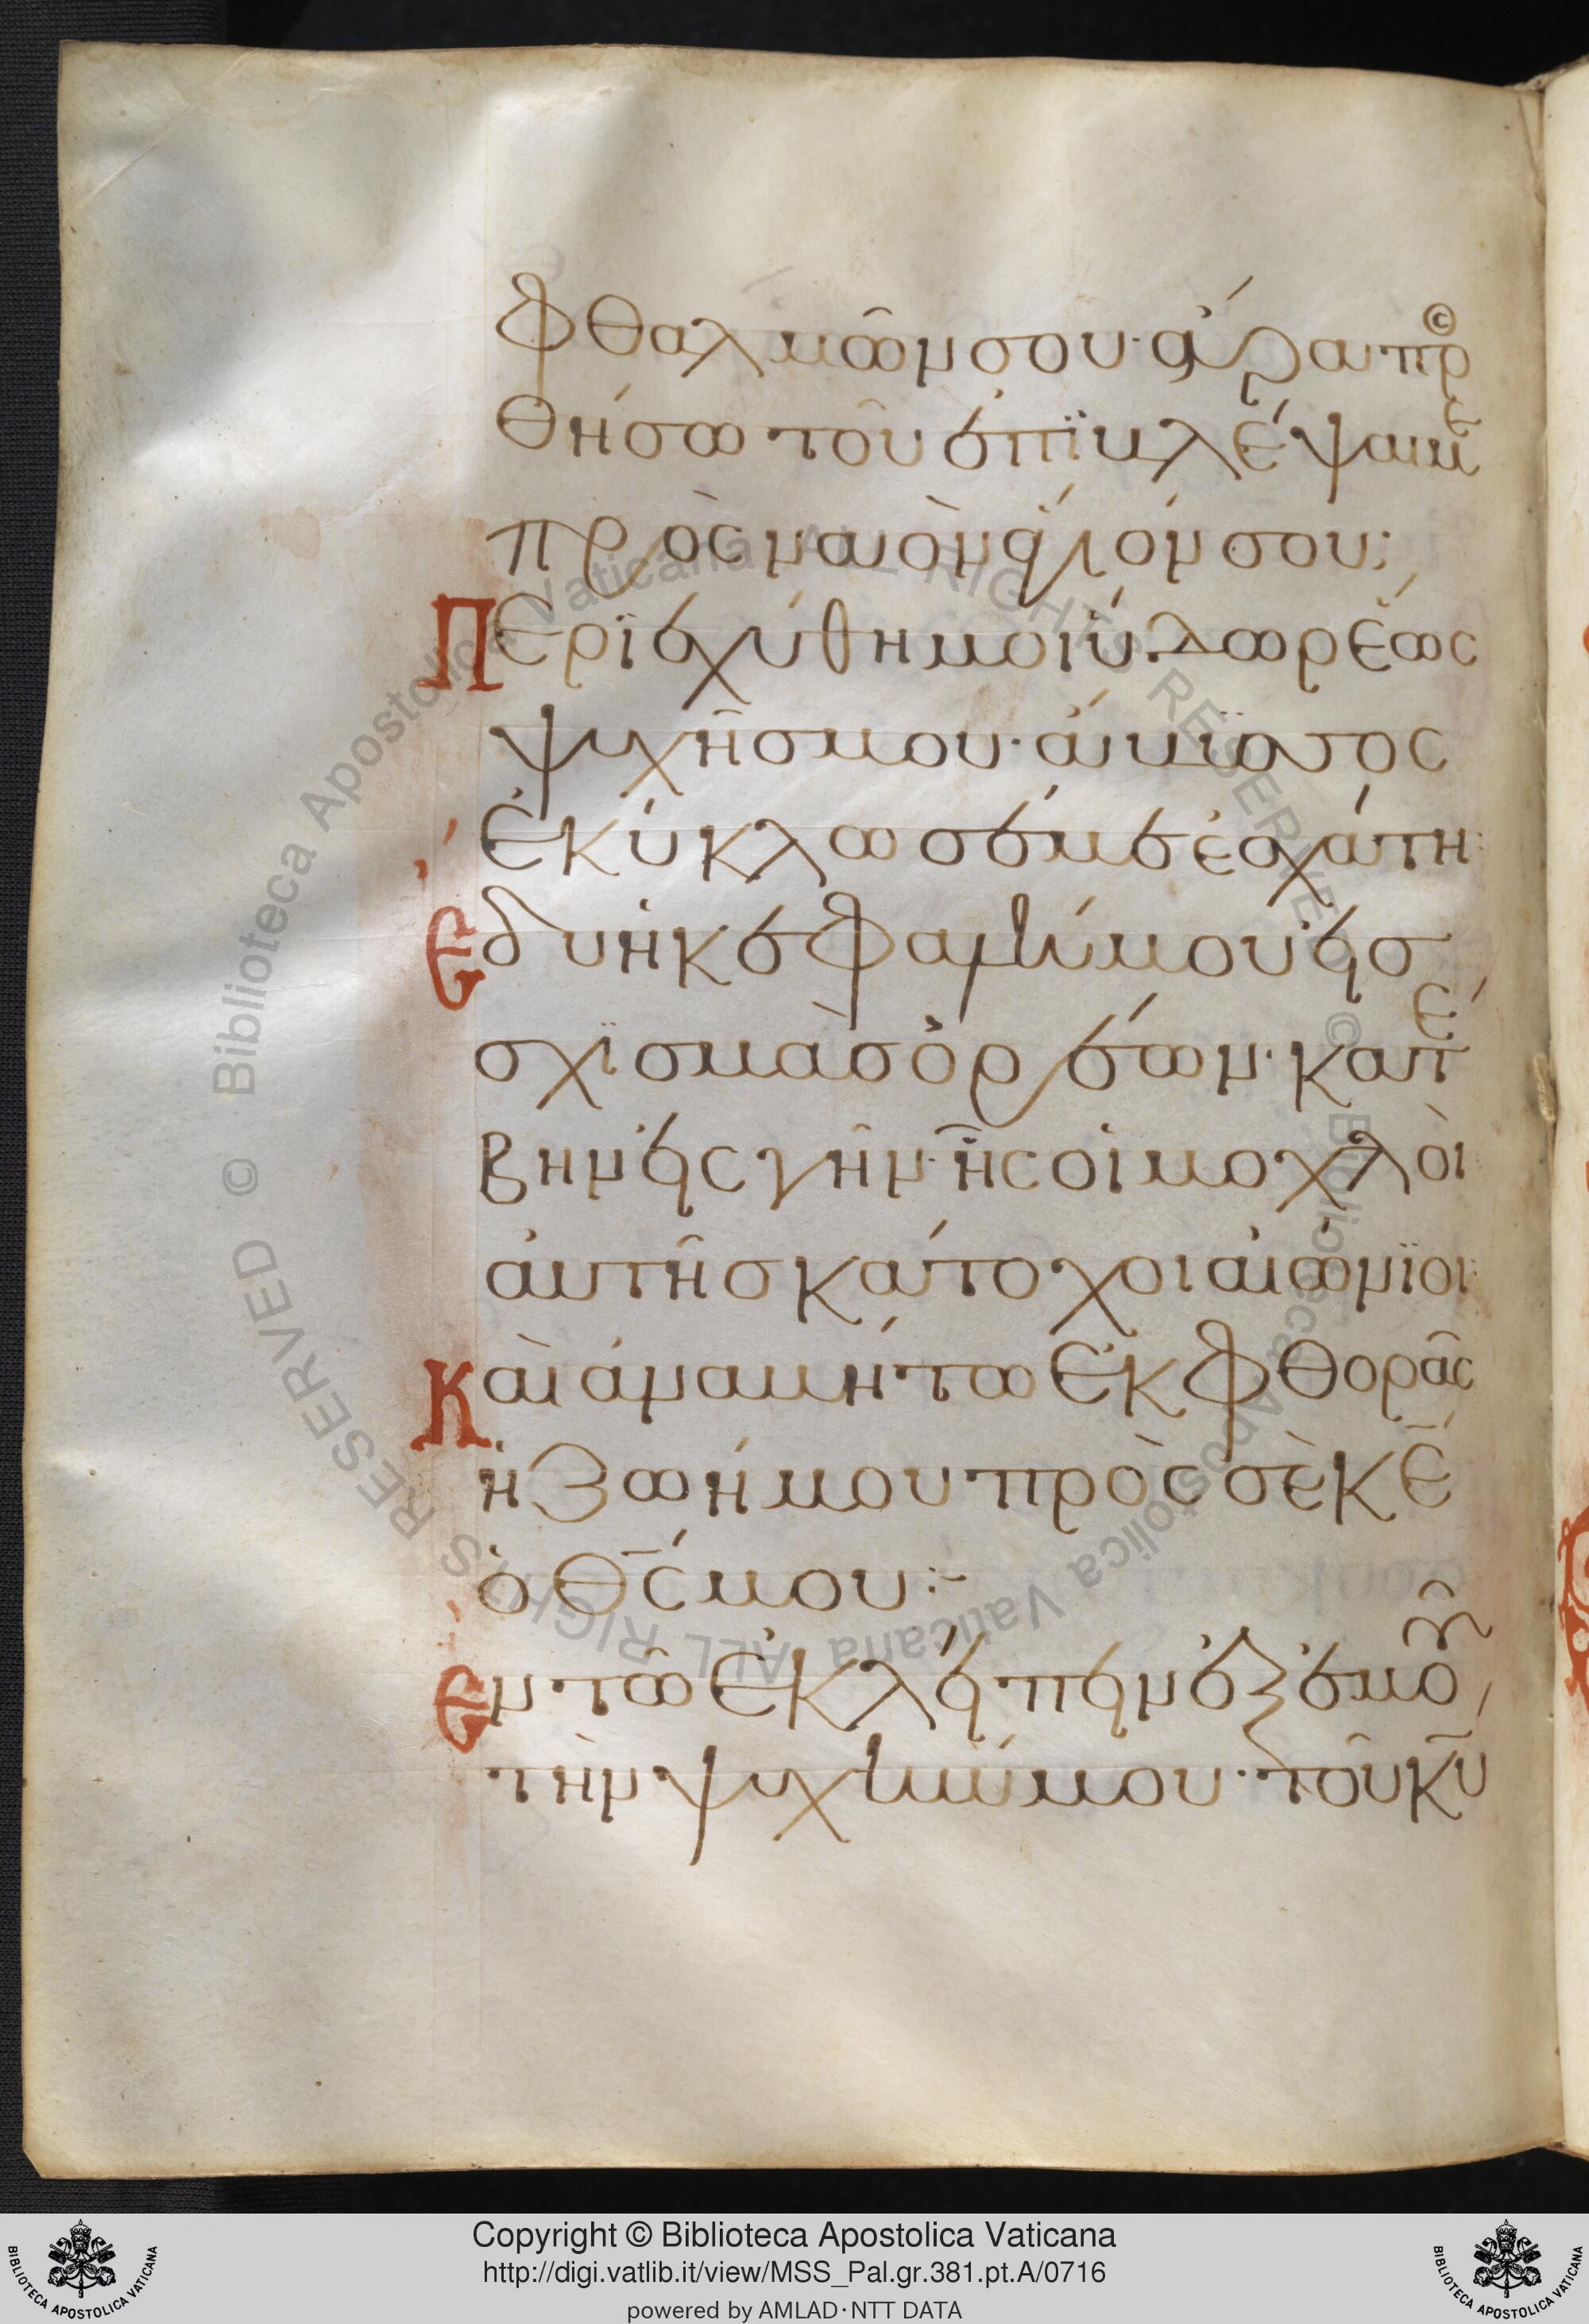 φθαλμῶν σου· ἄρα πρ
θήσω τοῦ ἐπϊβλέψαι με
πρὸς ναὸν ἅγϊόν σου;
Περϊεχύθη μοι ὕδωρ ἕως
ψυχῆς μου· ἄβυσσος
ἐκύκλωσέ με ἐσχάτη·
Ἔδυ ἡ κεφαλή μου εἰσ
σχϊσμὰς ὀρέων· κατέ
βην εἰς γῆν· ἧς οἱ μοχλοὶ
αὐτῆς κάτοχοι αἰώνϊοι·
Καὶ ἀναβήτω ἐκ φθορᾶς
ἡ ζωή μου πρὸς σὲ κ̅ε̅
ὁ θ̅ς̅ μου:-
Ἐν τῶ ἐκλείπειν ἐξ ἐμοῦ
τὴν ψυχήν μου· τοῦ κ̅υ̅
© Biblioteca Apostolica Vaticana ALL RIGHTS RESERVED © Biblioteca Apostolica Vaticana ALL RIGHTS RESERVED
Copyright © Biblioteca Apostolica Vaticana
http://digi.vatlib.it/view/MSS_Pal.gr.381.pt.A/0716
powered by AMLAD·NTT DATA
BIBLIOTECA APOSTOLICA VATICANA
BIBLIOTECA APOSTOLICA VATICANA